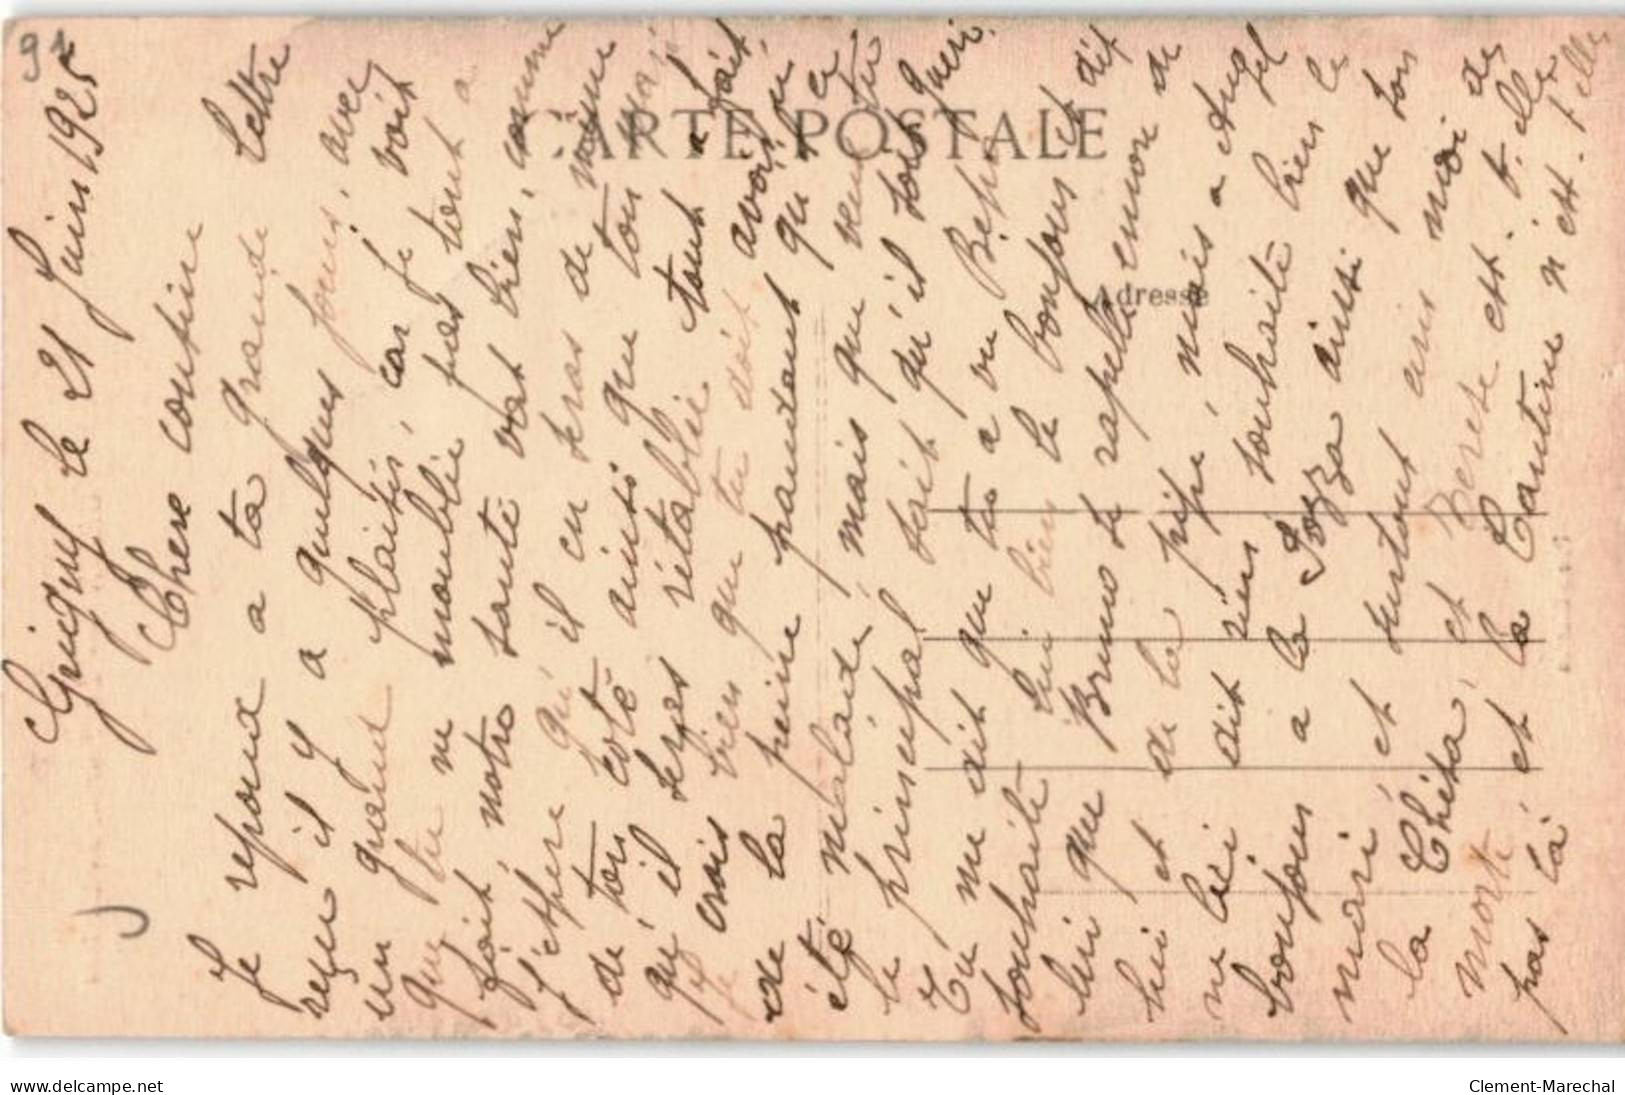 91
Grigny le 21 Juin 1925
Chere cousine
Je repond a ta grande lettre
reçu il y a quelques jours, avec
un grand plaisir, car je voit
que tu m'oublie pas tout a
fait, notre santé vat bien, comme
j'espere qu'il en seras de même
de ton coté ainsi que ton mari
qu'il seras rétablie tout a fait,
Je crois bien que tu doit avoir eu
de la peine pandant qu'il a
été malade, mais que veut tu
le principal soit qu'il sois gueri.
Tu me dit que tu a vu Bepi
souhaite lui bien le bonjour et dit
lui que Bruno se rapelle encore de
lui et de la pipe, mais a Angel
ne lui dit rien souhaite bien le
bonjour a la Pozza ainsi que son
mari et surtout ami moi de
la Thésa, et Berete est-t-elle
morte, et la Cantine n'est-t-elle
pas là
CARTE POSTALE
Adresse
www.delcampe.net
Clement-Marechal